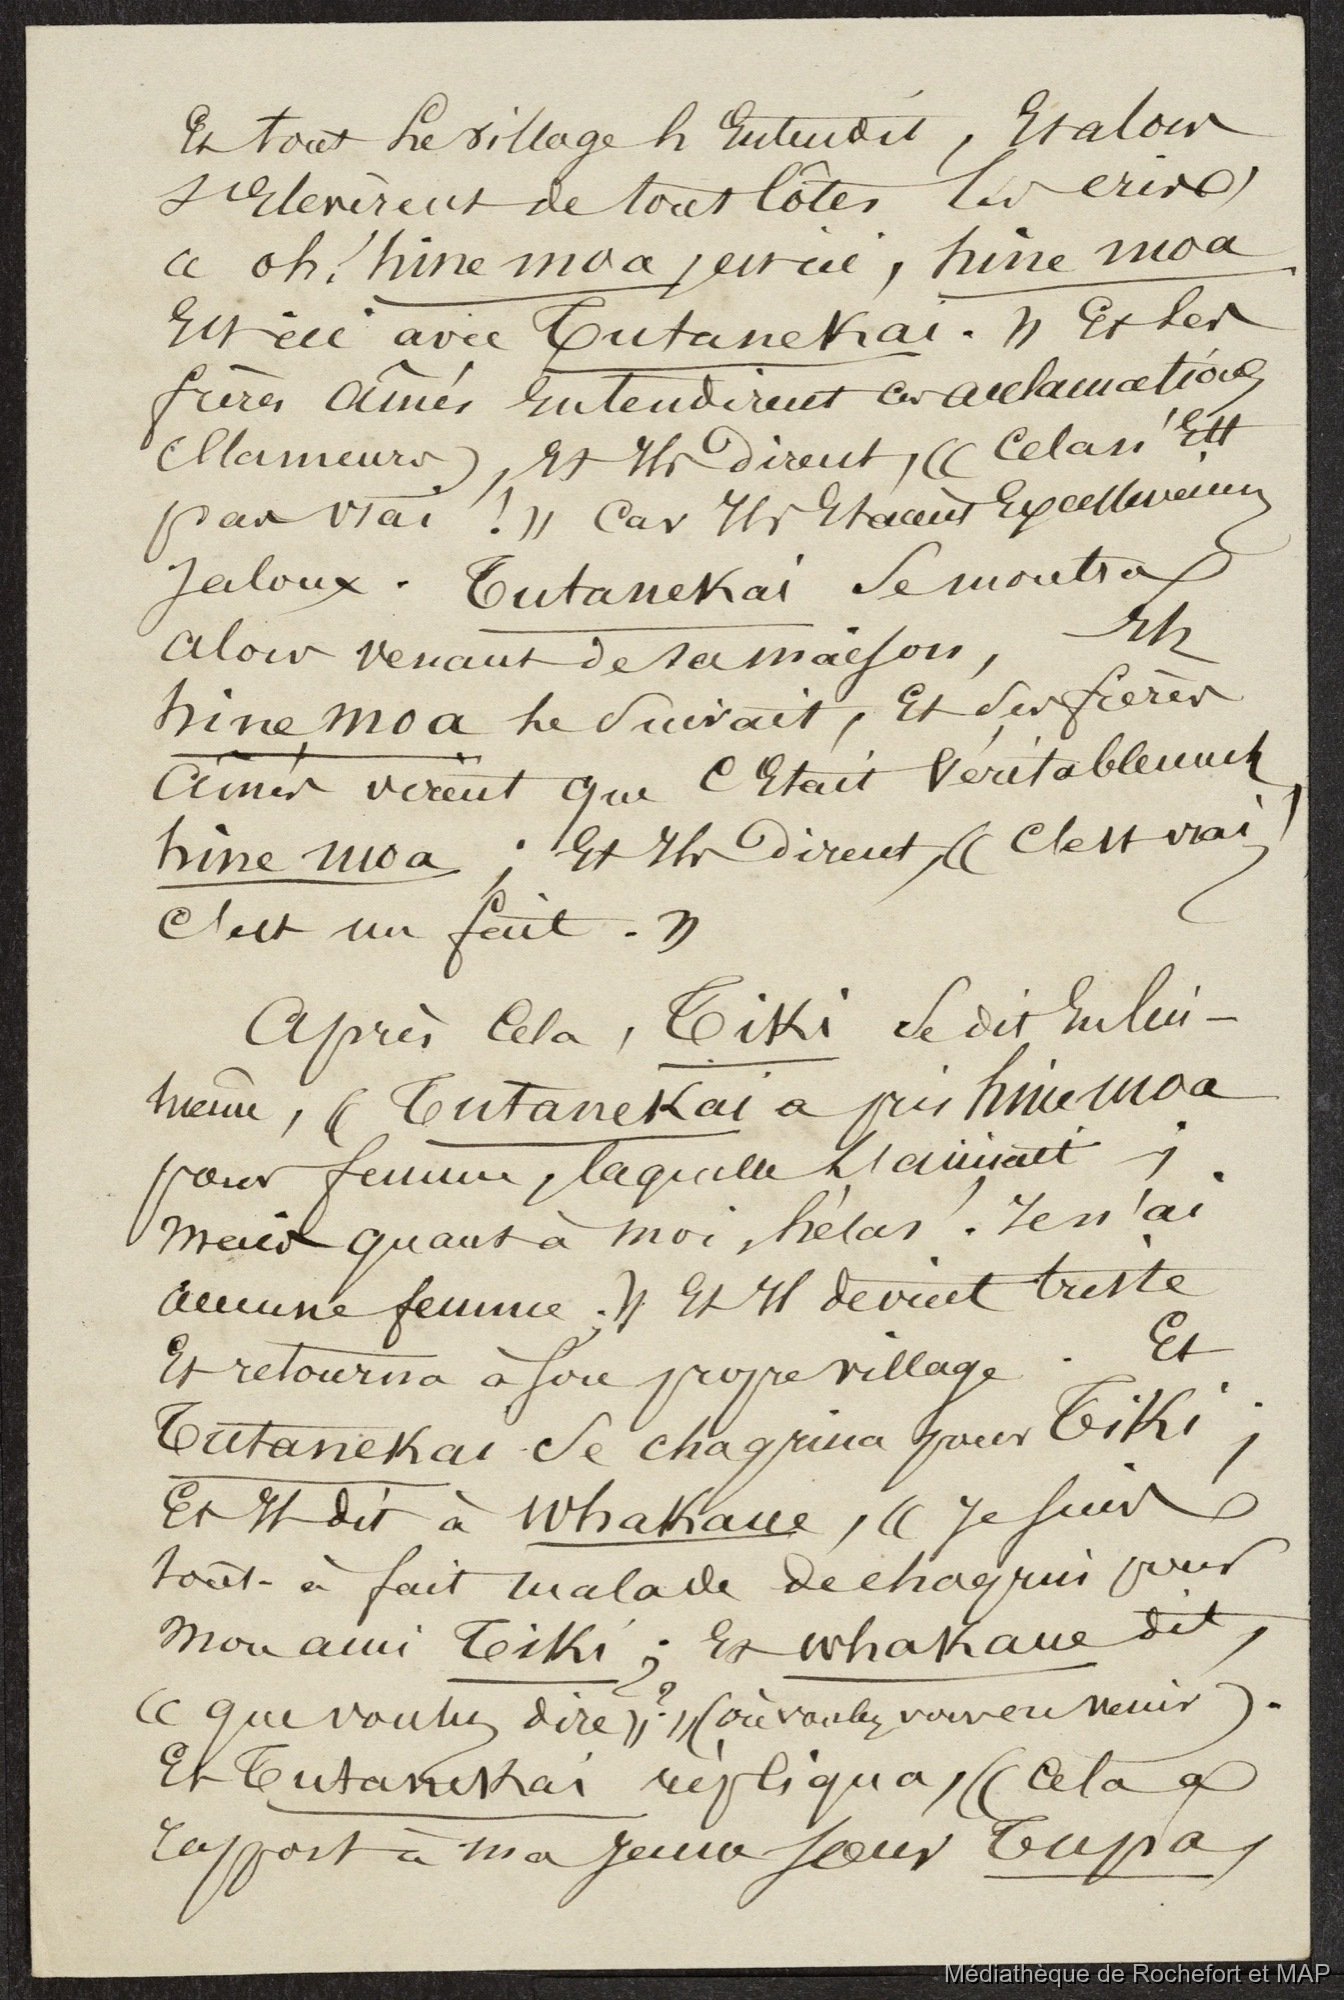 Et tout le village l'Entendit, Et alors
s'Elevèrent de tout côtés les cris
« oh! hine moa est ici, hine moa
Est ici avec Tutanekai. » Et les
frères aînés Entendirent ces acclamations
(Clameurs), Et Ils dirent, « Cela n'Est
pas vrai! » Car Ils Etaient Excessivement
Jaloux. Tutanekai Se montra
alors venant de sa maison, Et
hine moa le Suivait, Et Ses frères
aînés virent que C'Etait Véritablement
hine moa ; Et Ils Dirent, « C'est vrai!
C'est un fait. »
Après Cela, Tiki Se dit En lui-
même, « Tutanekai a pris hine moa
pour femme, laquelle Il aimait ;
mais quant à moi, hélas! Je n'ai
aucune femme. » Et Il devint triste
Et retourna à Son propre village. Et
Tutanekai Se chagrina pour Tiki ;
Et Il dit à Whakaue, « Je Suis
tout-à fait malade de chagrin pour
Mon ami Tiki ; Et Whakaue dit,
« que voulez dire? » (où voulez vous en venir).
Et Tutanekai répliqua, « Cela a
rapport à ma Jeune Sœur Tupa,
Médiathèque de Rochefort et MAP